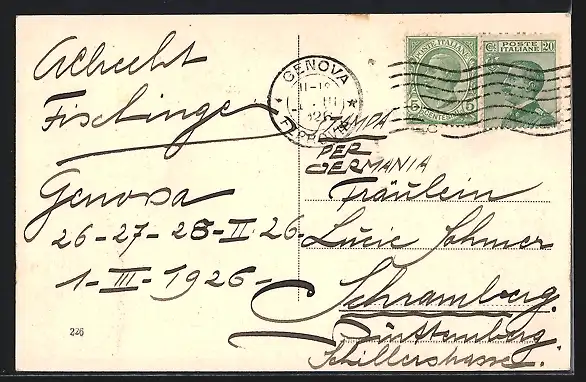 Albrecht
Fischinger
Genova
26-27-28-II. 26.
1-III-1926-
226
GENOVA
11-12
1 · III
FERROVIA
POSTE ITALIANE
5 CENTESIMI 5
Ct. POSTE ITALIANE 20
STAMPA
PER
GERMANIA
Fräulein
Lucie Sohmer
Schramberg.
Württenbg.
Schillerstrasse